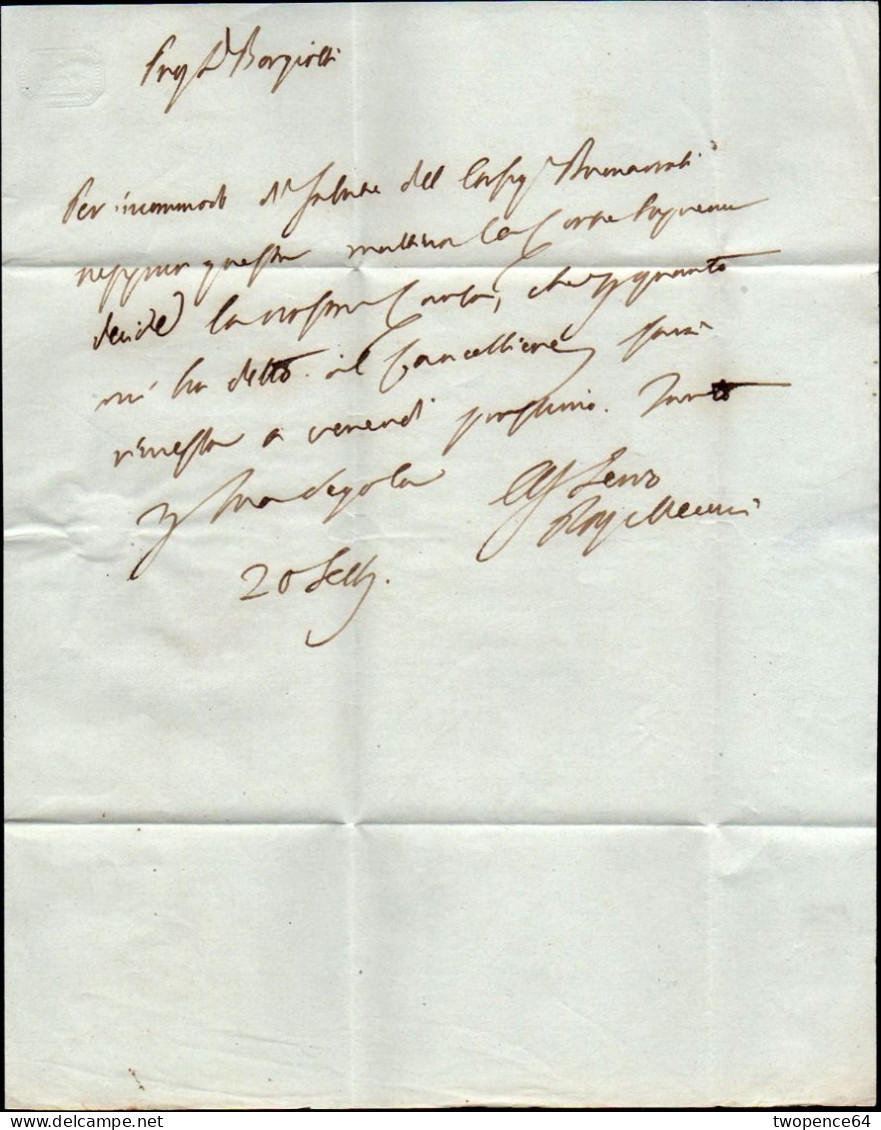 Preg Borgiotti
Per incommodo di salute del Consig Buonarroti
neppur questa mattina la Corte Suprema
decide la nostra Causa, che p quanto
mi ha detto il Cancelliere, sarà
rimessa a venerdì prossimo. Tanto
p sua regola
Servo
20 Sett
delcampe.net
twopence64